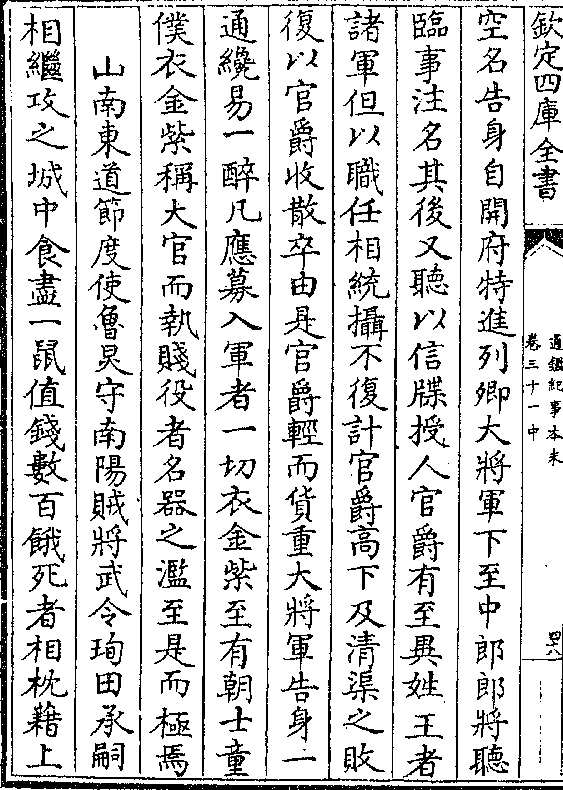 欽定四庫全書
通鑑紀事本末
卷三十一中
四十八
空名告身自開府特進列卿大將軍下至中郎郎將聽
臨事注名其後又聽以信牒授人官爵有至異姓王者
諸軍但以職任相統攝不復計官爵高下及清渠之敗
復以官爵收散卒由是官爵輕而貨重大將軍告身一
通纔易一醉凡應募入軍者一切衣金紫至有朝士童
僕衣金紫稱大官而執賤役者名器之濫至是而極焉
山南東道節度使魯炅守南陽賊將武令珣田承嗣
相繼攻之城中食盡一鼠值錢數百餓死者相枕藉上